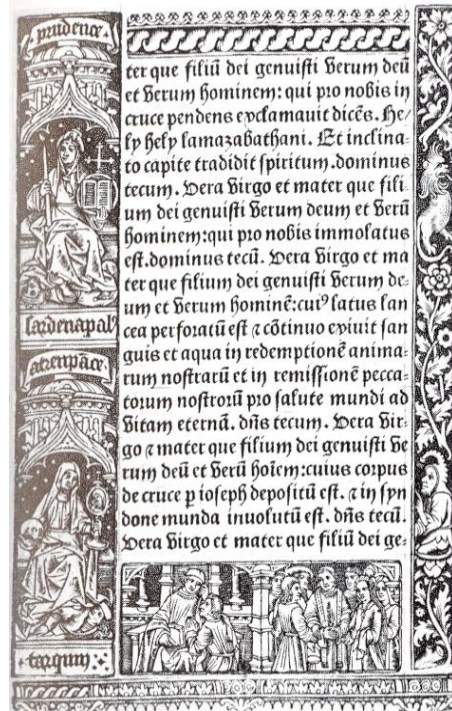 prudence
sardenapalꝰ
atrempāce
tarquin
ter que filiū dei genuisti Verum deū
et Verum hominem: qui pro nobis in
cruce pendens exclamauit dicēs. He/
ly hely lamazabathani. Et inclina-
to capite tradidit spiritum.dominus
tecum. Vera Virgo et mater que fili-
um dei genuisti Verum deum et Verū
hominem:qui pro nobis immolatus
est.dominus tecū. Vera Virgo et ma
ter que filium dei genuisti Verum de-
um et Verum hominē:cuiꝰ latus lan
cea perforatū est ⁊ cōtinuo exiuit san
guis et aqua in redemptionē anima-
rum nostrarū et in remissionē pecca-
torum nostrorū pro salute mundi ad
Vitam eternā. dn̄s tecum. Vera Vir-
go ⁊ mater que filium dei genuisti Ve
rum deū et Verū hoīem:cuius corpus
de cruce ꝑ ioseph depositū est. ⁊ in syn
done munda inuolutū est. dn̄s tecū.
Vera Virgo et mater que filiū dei ge-